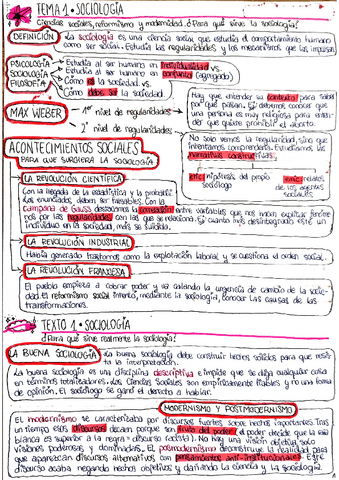 TEMA 1 • SOCIOLOGÍA
Ciencias sociales, reformismo y modernidad. ¿Para qué sirve la sociología?
DEFINICIÓN → La sociología es una ciencia social que estudia el comportamiento humano
como ser social. Estudia las regularidades y los mecanismos que las impulsan
PSICOLOGÍA → Estudia al ser humano en individualidad vs.
SOCIOLOGÍA → Estudia al ser humano en conjunto (agregado)
Cómo es la sociedad vs.
FILOSOFÍA → Cómo debe ser la sociedad.
Hay que entender su contexto para saber
por qué pasan. Si debemos conocer que
una persona es muy religiosa para enten-
der que quiere prohibir el aborto.
MAX WEBER
1er nivel de regularidades
2º nivel de regularidades
No solo vemos la regularidad, sino que
intentamos comprenderla. Estudiamos las
narrativas constructivas.
emic: hipótesis del propio
sociólogo
emic: relatos
de los agentes
sociales
ACONTECIMIENTOS SOCIALES
PARA QUE SURGIERA LA SOCIOLOGÍA
LA REVOLUCIÓN CIENTÍFICA
Con la llegada de la estadística y la probabilidad
los enunciados deben ser fiables. Con la
Campana de Gauss destacamos la correlación entre variables que nos hacen explicar fenóme
nos por las regularidades con las que se relaciona. Si cuanto más desintegrado esté un
individuo en la sociedad, más se suicida.
LA REVOLUCIÓN INDUSTRIAL
Había generado trastornos como la explotación laboral y se cuestiona el orden social.
LA REVOLUCIÓN FRANCESA
El pueblo empieza a cobrar poder y va calando la urgencia de cambio de la socie-
dad. El reformismo social intentó, mediante la sociología, conocer las causas de las
transformaciones.
TEXTO 1 • SOCIOLOGÍA
¿Para qué sirve realmente la sociología?
LA BUENA SOCIOLOGÍA
La buena sociología debe construir hechos sólidos para que resis-
ta la interpretación.
La buena sociología es una disciplina descriptiva e impide que se diga cualquier cosa
en términos totalizadores. Las Ciencias Sociales son empíricamente fiables y no una forma
de opinión. El sociólogo se gana el derecho a hablar.
MODERNISMO Y POSTMODERNISMO
El modernismo se caracterizaba por discursos fuertes sobre hechos importantes. Tras
un tiempo esos discursos decaen porque son fruto del poder (el poder decide que la raza
blanca es superior a la negra = discurso racista). No hay una visión objetiva solo
visiones poderosas y dominadas. El postmodernismo deconstruye la realidad para
que aparezcan discursos alternativos con pensamientos anti-institucionales. Este
discurso acaba negando hechos objetivos y dañando la ciencia y la sociología.